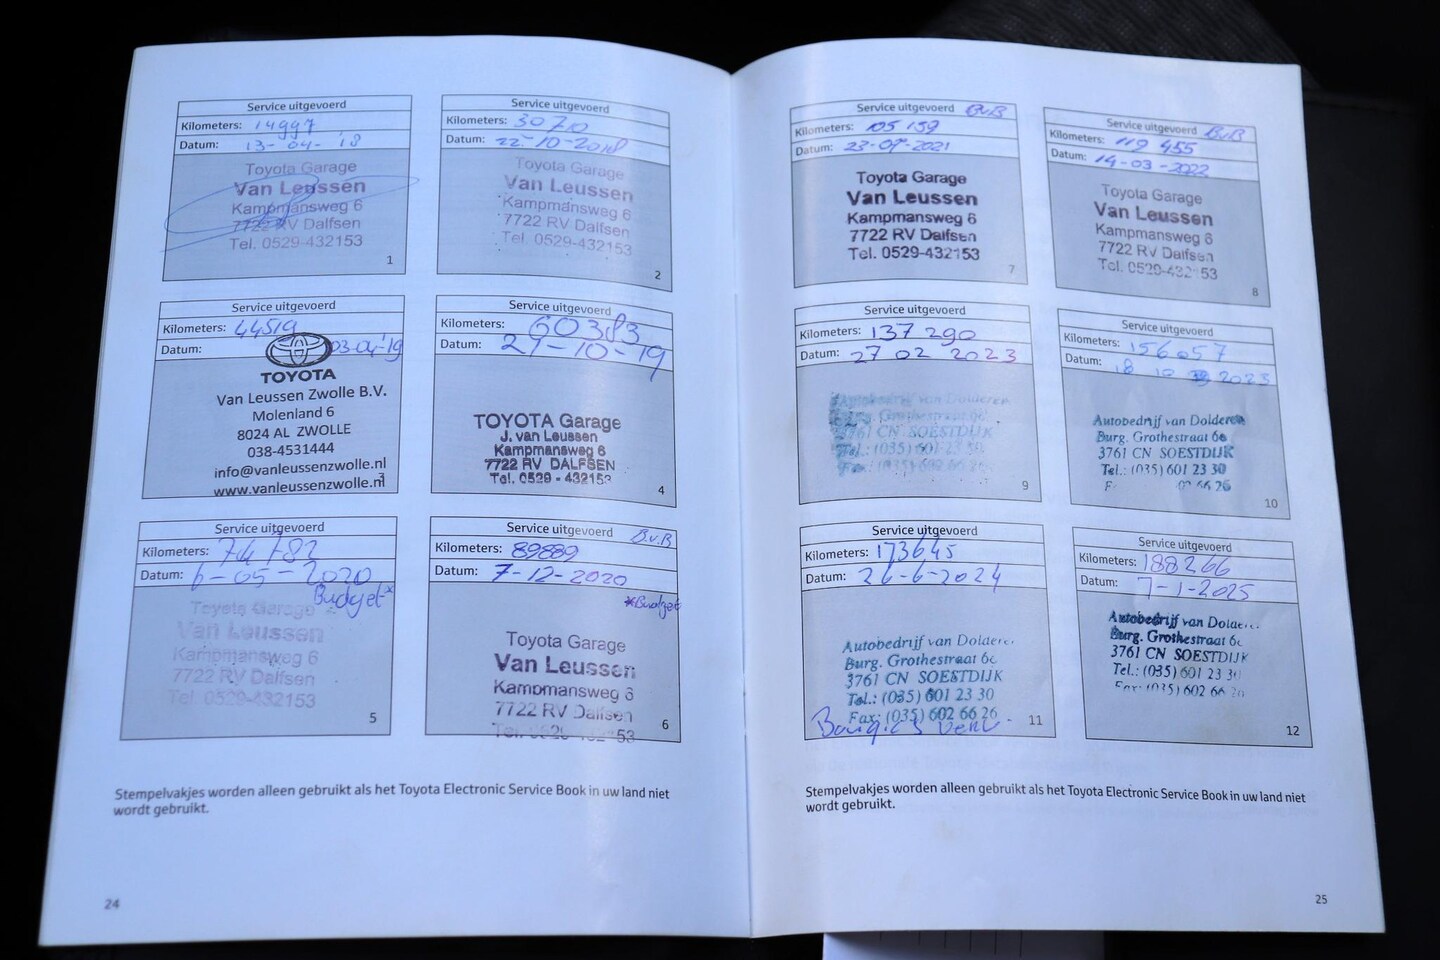 Service uitgevoerd
Kilometers: 14997
Datum: 13-04-'18
Toyota Garage
Van Leussen
Kampmansweg 6
7722 RV Dalfsen
Tel. 0529-432153
1
Service uitgevoerd
Kilometers: 30710
Datum: 22-10-2018
Toyota Garage
Van Leussen
Kampmansweg 6
7722 RV Dalfsen
Tel. 0529-432153
2
Service uitgevoerd
Kilometers: 44519
Datum: 03-04-'19
TOYOTA
Van Leussen Zwolle B.V.
Molenland 6
8024 AL ZWOLLE
038-4531444
info@vanleussenzwolle.nl
www.vanleussenzwolle.nl
3
Service uitgevoerd
Kilometers: 60383
Datum: 29-10-19
TOYOTA Garage
J. van Leussen
Kampmansweg 6
7722 RV DALFSEN
Tel. 0529 - 432153
4
Service uitgevoerd
Kilometers: 74782
Datum: 6-05-2020
Budget*
Toyota Garage
Van Leussen
Kampmansweg 6
7722 RV Dalfsen
Tel. 0529-432153
5
Service uitgevoerd B.v.B
Kilometers: 89889
Datum: 7-12-2020
*Budget
Toyota Garage
Van Leussen
Kampmansweg 6
7722 RV Dalfsen
Tel. 0529-432153
6
Stempelvakjes worden alleen gebruikt als het Toyota Electronic Service Book in uw land niet
wordt gebruikt.
24
Service uitgevoerd BvB
Kilometers: 105 159
Datum: 23-07-2021
Toyota Garage
Van Leussen
Kampmansweg 6
7722 RV Dalfsen
Tel. 0529-432153
7
Service uitgevoerd BvB
Kilometers: 119 455
Datum: 14-03-2022
Toyota Garage
Van Leussen
Kampmansweg 6
7722 RV Dalfsen
Tel. 0529-432153
8
Service uitgevoerd
Kilometers: 137 290
Datum: 27 02 2023
Autobedrijf van Dolderen
Burg. Grothestraat 6c
3761 CN SOESTDIJK
Tel.: (035) 601 23 30
Fax: (035) 602 66 26
9
Service uitgevoerd
Kilometers: 156057
Datum: 18 10 2023
Autobedrijf van Dolderen
Burg. Grothestraat 6c
3761 CN SOESTDIJK
Tel.: (035) 601 23 30
F 02 66 26
10
Service uitgevoerd
Kilometers: 173645
Datum: 26-6-2024
Autobedrijf van Dolderen
Burg. Grothestraat 6c
3761 CN SOESTDIJK
Tel.: (035) 601 23 30
Fax: (035) 602 66 26
11
Service uitgevoerd
Kilometers: 188266
Datum: 7-1-2025
Autobedrijf van Dolde
Burg. Grothestraat 6c
3761 CN SOESTDIJK
Tel.: (035) 601 23 30
Fax: (035) 602 66 26
12
Stempelvakjes worden alleen gebruikt als het Toyota Electronic Service Book in uw land niet
wordt gebruikt.
25